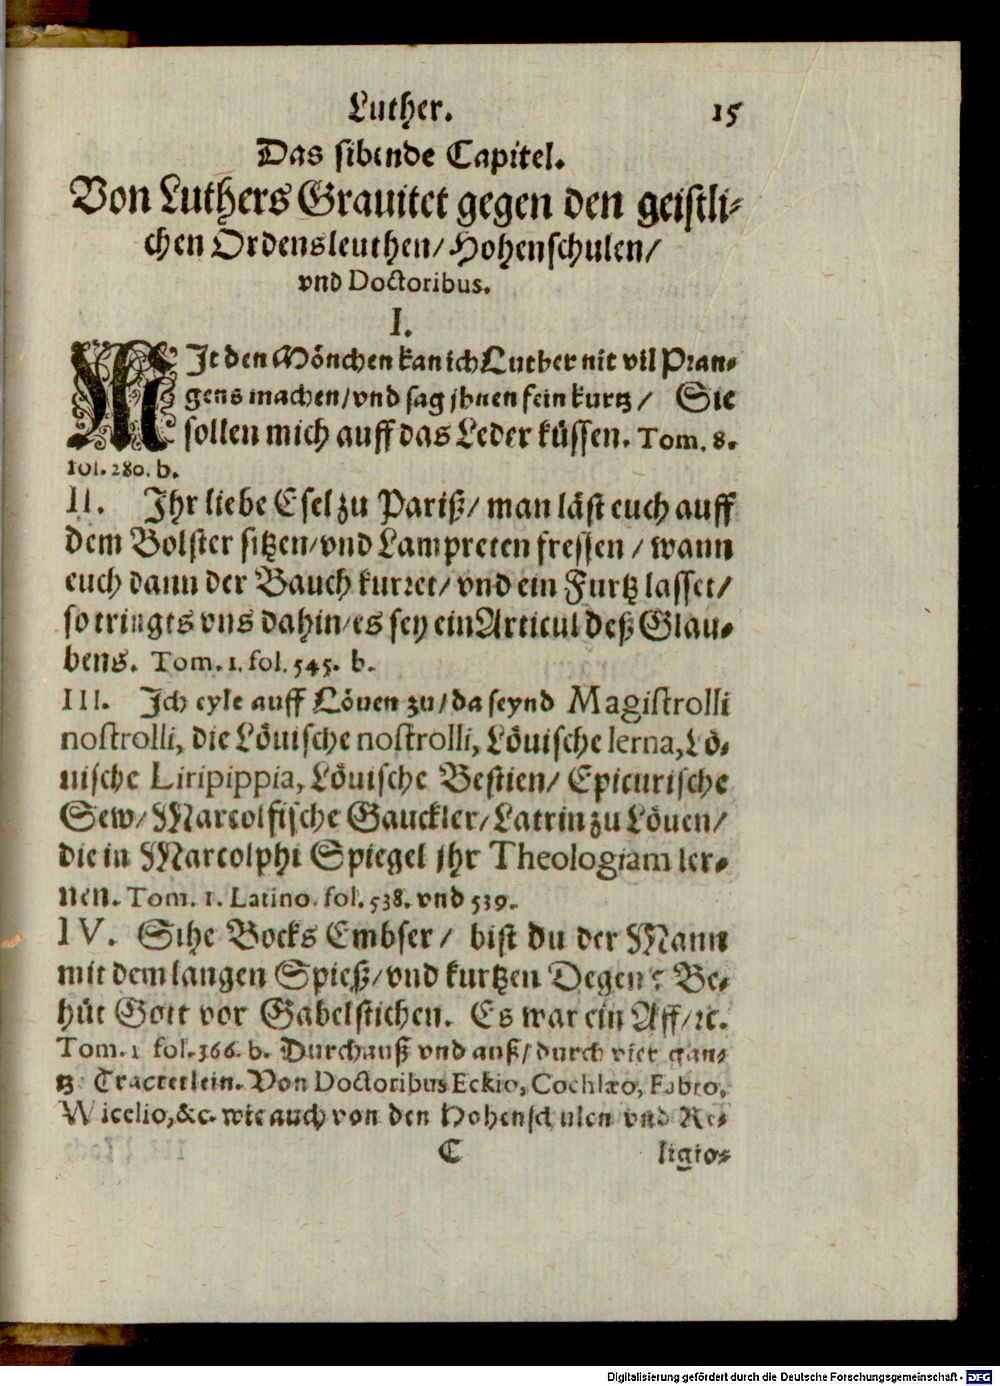 Luther. 15
Das sibende Capitel.
Von Luthers Grauitet gegen den geistli⸗
chen Ordensleuthen/ Hohenschulen/
vnd Doctoribus.
I.
MJt den Mönchen kan ich Luther nit vil Pran⸗
gens machen/ vnd sag jhnen fein kurtz/ Sie
sollen mich auff das Leder küssen. Tom. 8.
fol. 280. b.
II. Jhr liebe Esel zu Pariß/ man läst euch auff
dem Bolster sitzen/ vnd Lampreten fressen/ wann
euch dann der Bauch kurret/ vnd ein Furtz lasset/
so tringts vns dahin/ es sey ein Articul deß Glau⸗
bens. Tom. 1. fol. 545. b.
III. Jch eyle auff Löuen zu/ da seynd Magistrolli
nostrolli, die Löuische nostrolli, Löuische lerna, Lö⸗
uische Liripippia, Löuische Bestien/ Epicurische
Sew/ Marcolfische Gauckler/ Latrin zu Löuen/
die in Marcolphi Spiegel jhr Theologiam ler⸗
nen. Tom. 1. Latino. fol. 538. vnd 539.
IV. Sihe Bocks Embser/ bist du der Mann
mit dem langen Spieß/ vnd kurtzen Degen? Be⸗
hüt Gott vor Gabelstichen. Es war ein Aff/ ꝛc.
Tom. 1 fol. 366. b. Durchauß vnd auß/ durch vier gan⸗
tz Tractetlein. Von Doctoribus Eckio, Cochlæo, Fabro,
Wicelio, &c. wie auch von den Hohenschulen vnd Re⸗
C ligio⸗
Digitalisierung gefördert durch die Deutsche Forschungsgemeinschaft - DFG